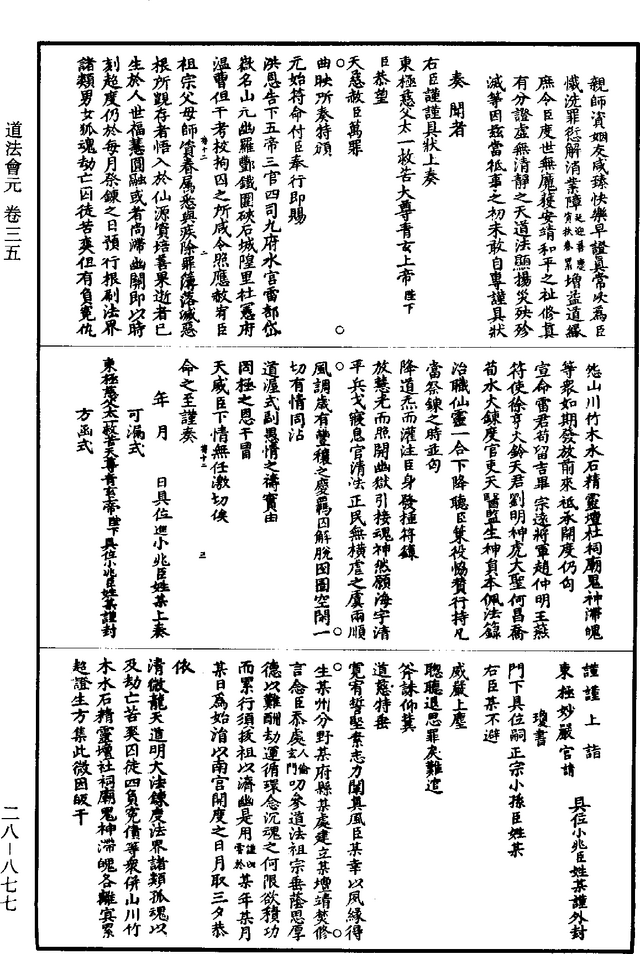 道法會元 卷三五
二八-八七七
親師資姻友咸臻快樂早證真常次為臣
懺洗罪愆解消業障延迎善慶資扶眷累增益道緣
庶令臣度世無魔獲安靖和平之祉修真
有分證虛無清靜之天道法顯揚災殃殄
滅等因玆當秪事之初未敢自專謹具狀
奏聞者
右臣謹謹具狀上奏
東極慈父太一救苦大尊青玄上帝陛下
臣恭望
天慈赦臣萬罪
曲映所奏特頒
元始符命付臣奉行即賜
洪恩告下五帝三官四司九府水官雷都岱
嶽名山元幽羅酆鐵圍硤石城隍里社冤府
溫曹但干考校拘囚之所咸令照應赦宥臣
祖宗父母師資眷屬悉與疾除罪簿落滅惡
根所覬存者悟入於仙源資培善果逝者已
生於人世福慧圓融或者尚滯幽關即以時
刻超度仍於每月祭鍊之日預行根刷法界
諸類男女孤魂劫亡囚徒苦爽但有負冤仇
怨山川竹木水石精靈壇社祠廟鬼神滯魄
等衆如期發放前來祗承開度仍勾
宣命雷君苟留吉畢宗遠將軍趙仲明王燕
符使徐亨大鈴天君劉明神虎大聖何昌喬
荀水火鍊度官吏天醫監生神員本佩法籙
治職仙靈一合下降聽臣策役恊贊行持凡
當祭鍊之時並勾
降道炁而灌注臣身發揮符籙
放慧光而照開幽獄引接魂神然願海宇清
平兵戈寢息官清法正民無橫虐之虞雨順
風調歲有豐穰之慶羈囚解脫囹圄空閑一
切有情同沾
道渥式副愚情之禱實由
罔極之恩干冒
天威臣下情無任激切俟
命之至謹奏
年 月 日具位臣小兆臣姓某上奏
可漏式
東極慈父太一救苦天尊青玄上帝陛下具位小兆臣姓某謹封
方函式
謹謹上詣
東極妙嚴宮請 具位小兆臣姓某謹外封
瓊書
門下具位嗣正宗小孫臣姓某
右臣某不避
威嚴上塵
聰聽退思罪戾難逭
斧誅仰冀
道慈特垂
寬宥誓堅素志力闡真風臣某幸以夙緣得
生某州分野某府縣某處建立某壇靖焚修
言念臣忝處人倫玄門叨參道法祖宗垂蔭恩厚
德以難酬劫運循環念沉魂之何限欲積功
而累行須拔祖以濟幽是用謹涓嘗於某年某月
某日為始涓以南宮開度之日月取三夕恭
依
清微龍天道明大法鍊度法界諸類孤魂以
及劫亡苦爽囚徒四負冤債等衆併山川竹
木水石精靈壇社祠廟鬼神滯魄各離冥累
超證生方集此微因皈干